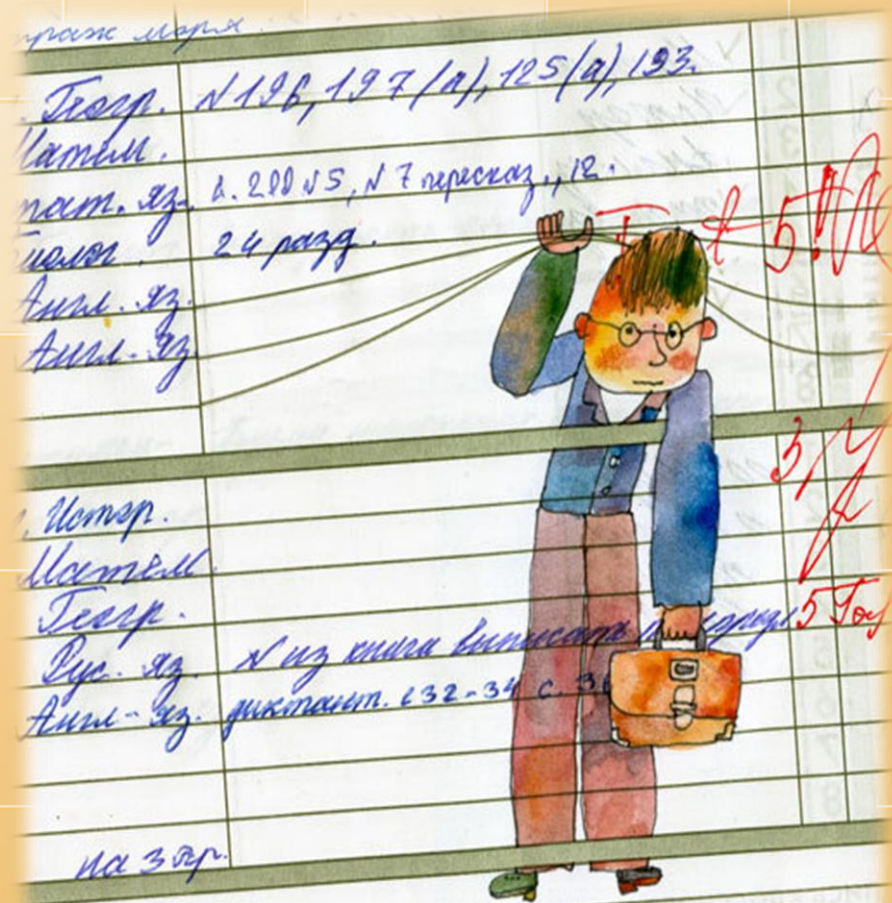 ираж моря.
. Геогр. N 196, 197 (а), 125 (а), 193.
Матем.
тат. яз. с. 200 N 5, N 7 пересказ., 12.
Биолог. 24 разд. 5!
Англ. яз.
Англ. яз.
3
. Истор.
Матем.
Геогр.
Рус. яз. N из книги выписать 5
Англ. яз. диктант. с 32-34 с. 3
на 3 тр.